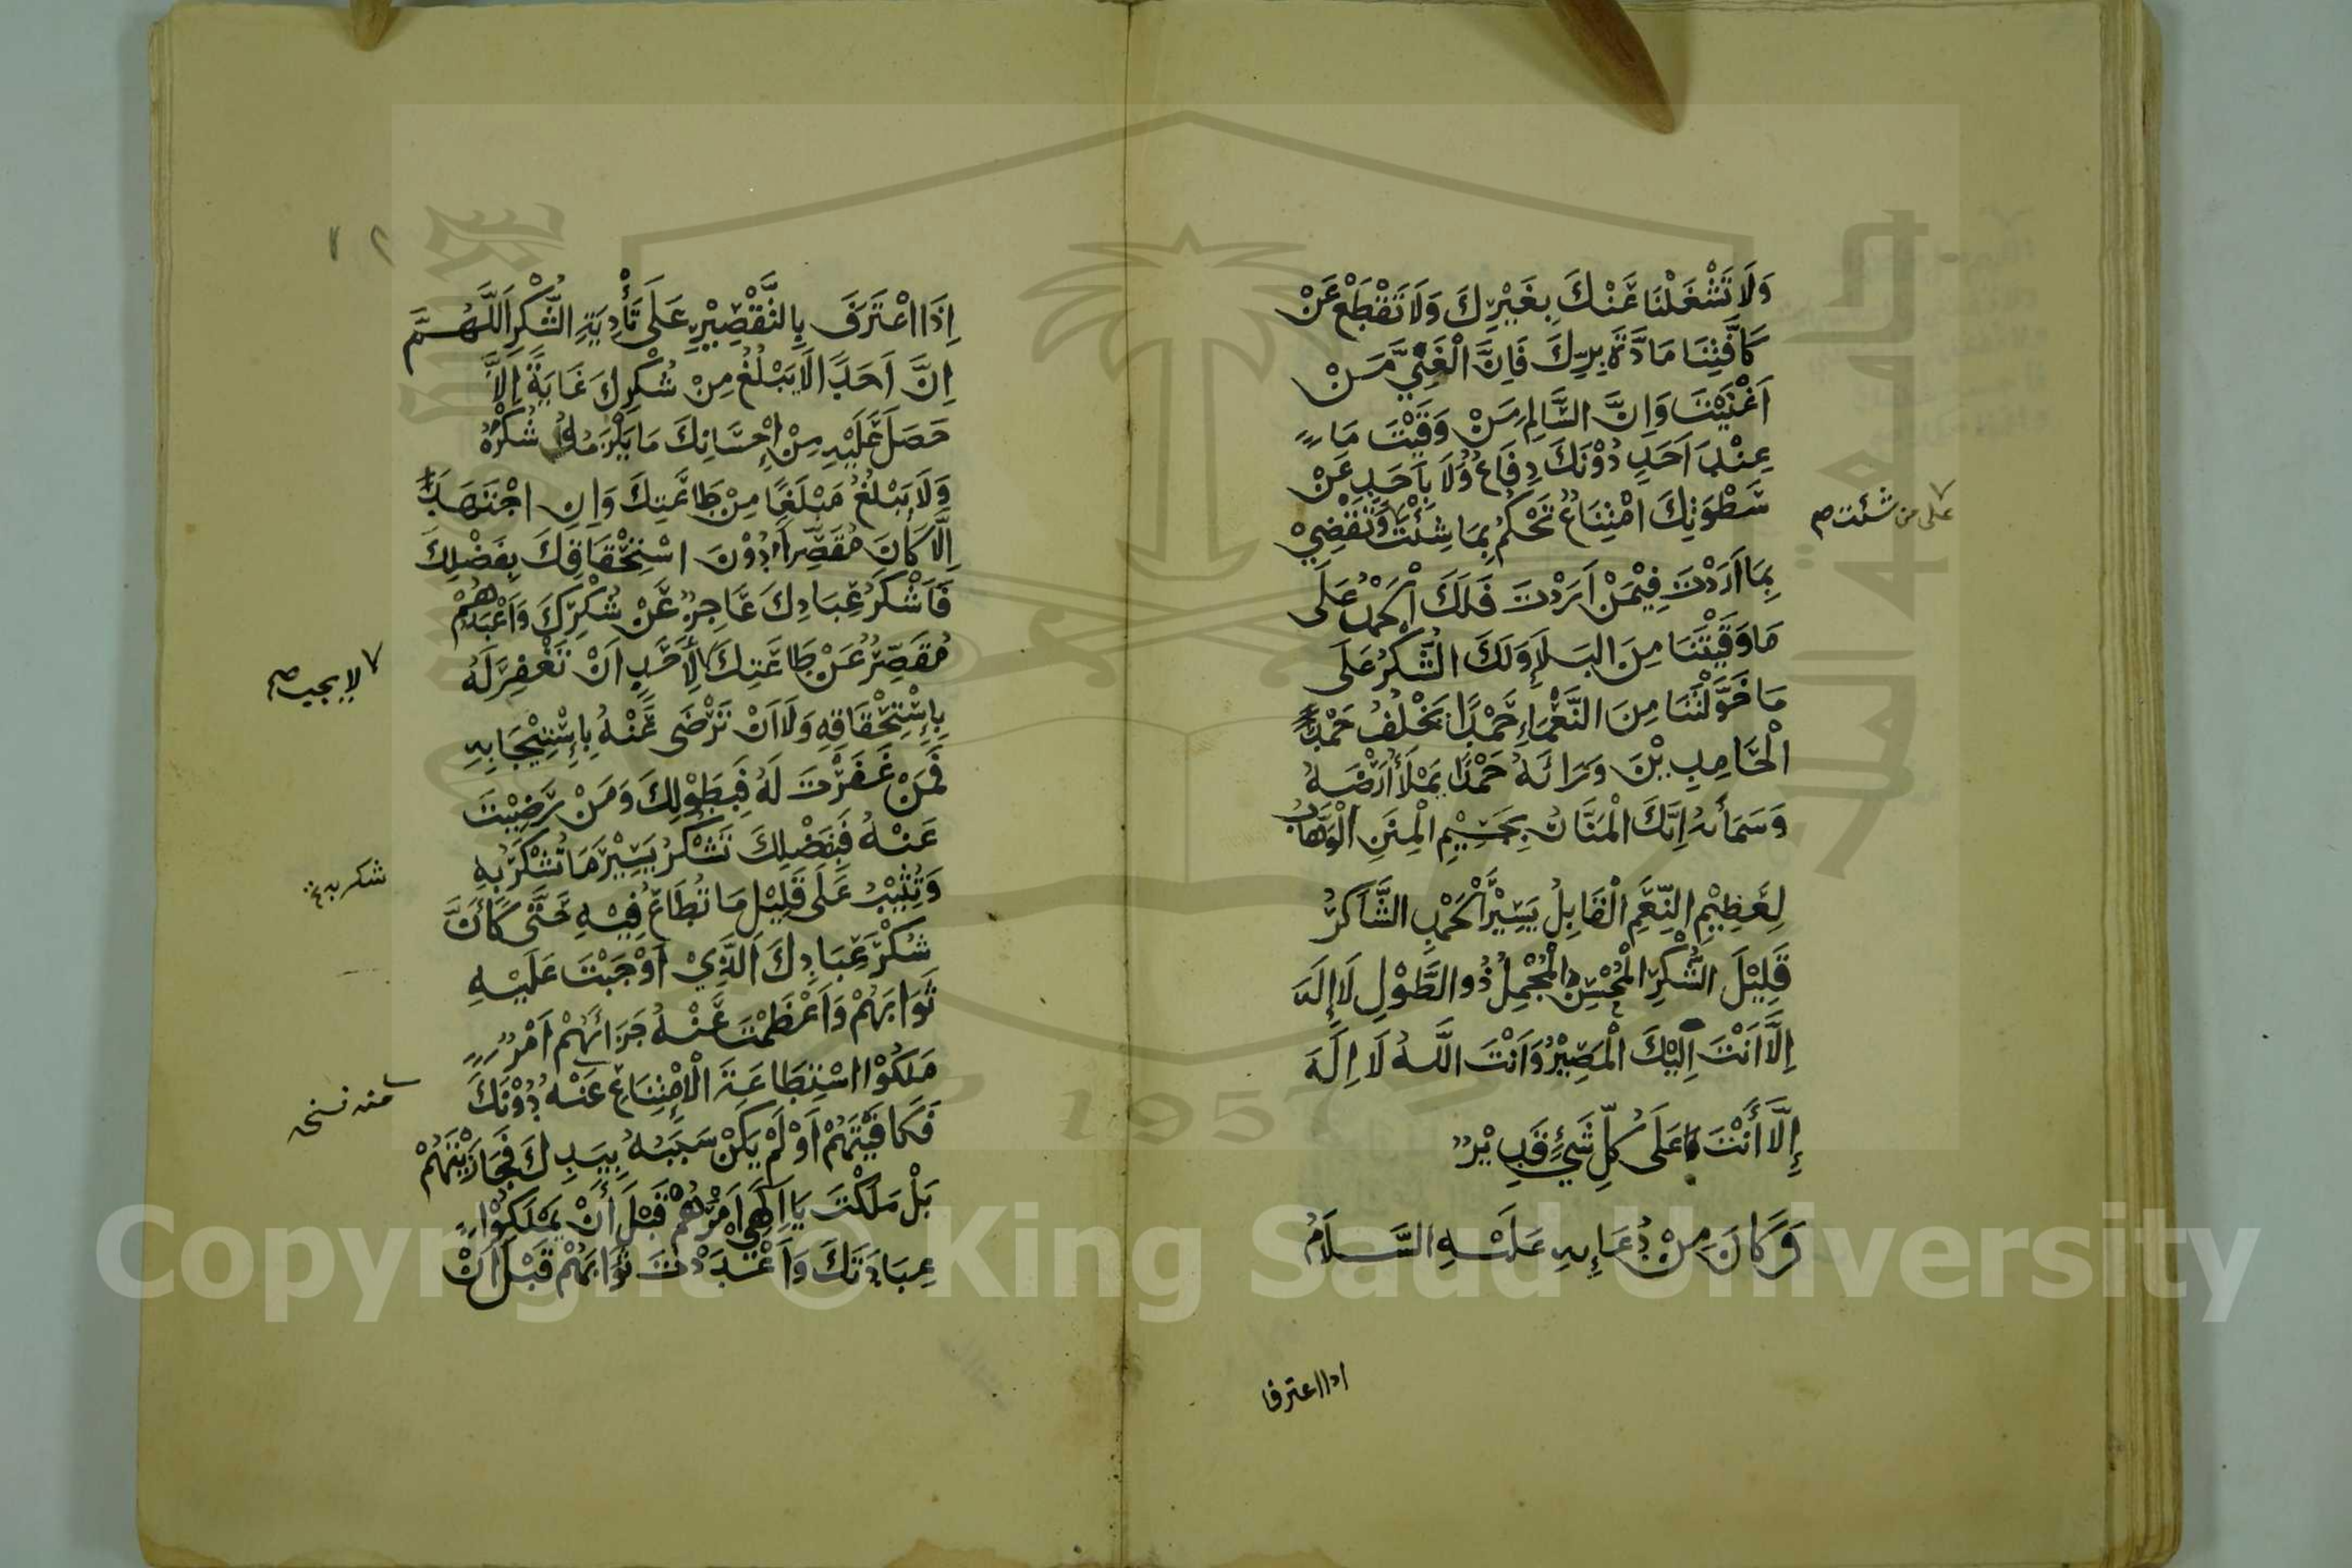 وَلَا تَشْغَلْنَا عَنْكَ بِغَيْرِكَ وَلَا تَقْطَعْ عَنْ
كَافَّتِنَا مَادَّةَ بِرِّكَ فَاِنَّ الْغَنِيَّ مَنْ
اَغْنَيْتَ وَاِنَّ السَّالِمَ مَنْ وَقَيْتَ مَا
عِنْدَ اَحَدٍ دُوْنَكَ دِفَاعٌ وَلَا بِاَحَدٍ عَنْ
سَطْوَتِكَ امْتِنَاعٌ تَحْكُمُ بِمَا شِئْتَ وَتَقْضِيْ
على من شئت صح
بِمَا اَرَدْتَ فِيْمَنْ اَرَدْتَ فَلَكَ الْحَمْدُ عَلَى
مَا وَقَيْتَنَا مِنَ البَلَاءِ وَلَكَ الشُّكْرُ عَلَى
مَا خَوَّلْتَنَا مِنَ النَّعْمَاءِ حَمْدًا يَخْلُفُ حَمْدَ
الْحَامِدِيْنَ وَرَائَهُ حَمْدًا يَمْلَأُ اَرْضَهُ
وَسَمَاْئَهُ اِنَّكَ الْمَنَّانُ بِجَسِيْمِ الْمِنَنِ الْوَهَّابُ
لِعَظِيْمِ النِّعَمِ الْقَابِلُ يَسِيْرَ الْحَمْدِ الشَّاكِرُ
قَلِيْلَ الشُّكْرِ الْمُحْسِنُ الْمُجْمِلُ ذُو الطَّوْلِ لَا اِلَهَ
اِلَّا اَنْتَ اِلَيْكَ الْمَصِيْرُ وَاَنْتَ اللَّهُ لَا اِلَهَ
إِلَّا أَنْتَ عَلَى كُلِّ شَيْئٍ قَدِيْرٌ
وَكَانَ مِنْ دُعَائِهِ عَلَيْهِ السَّلَامُ
اذا اعترفا
١٢
اِذَا اعْتَرَفَ بِالتَّقْصِيْرِ عَلَى تَأْدِيَةِ الشُّكْرِ اَللَّهُمَّ
اِنَّ اَحَدًا لَا يَبْلُغُ مِنْ شُكْرِكَ غَايَةً اِلَّا
حَصَلَ عَلَيْهِ مِنْ اِحْسَانِكَ مَا يَلْزَمُهُ شُكْرُهُ
وَلَا يَبْلُغُ مَبْلَغًا مِنْ طَاعَتِكَ وَاِنِ اجْتَهَدَ
اِلَّا كَانَ مُقَصِّرًا دُوْنَ اسْتِحْقَاقِكَ بِفَضْلِكَ
فَاَشْكَرُ عِبَادِكَ عَاجِزٌ عَنْ شُكْرِكَ وَاَعْبَدُهُمْ
مُقَصِّرٌ عَنْ طَاعَتِكَ لِاَحَدٍ اَنْ تَغْفِرَ لَهُ
لا يجب صح
بِاِسْتِحْقَاقِهِ وَلَا اَنْ تَرْضَى عَنْهُ بِاِسْتِيْجَابِهِ
فَمَنْ غَفَرْتَ لَهُ فَبِطَوْلِكَ وَمَنْ رَضِيْتَ
عَنْهُ فَبِفَضْلِكَ تَشْكُرُ يَسِيْرَ مَا تُشْكَرُ بِهِ
شكر به
وَتُثِيْبُ عَلَى قَلِيْلِ مَا تُطَاعُ فِيْهِ حَتَّى كَأَنَّ
شُكْرَ عِبَادِكَ الَّذِيْ اَوْجَبْتَ عَلَيْهِ
ثَوَابَهُمْ وَاَعْظَمْتَ عَنْهُ جَزَائَهُمْ اَمْرٌ
مَلَكُوْا اسْتِطَاعَةَ الْاِمْتِنَاعِ عَنْهُ دُوْنَكَ
منه نسخه
فَكَافَيْتَهُمْ اَوْ لَمْ يَكُنْ سَبَبُهُ بِيَدِكَ فَجَازَيْتَهُمْ
بَلْ مَلَكْتَ يَا اِلَهِيْ اَمْرَهُمْ قَبْلَ أَنْ يَمْلِكُوْا
عِبَادَتَكَ وَاَعْدَدْتَ ثَوَابَهُمْ قَبْلَ اَنْ
1957
Copyright © King Saud University